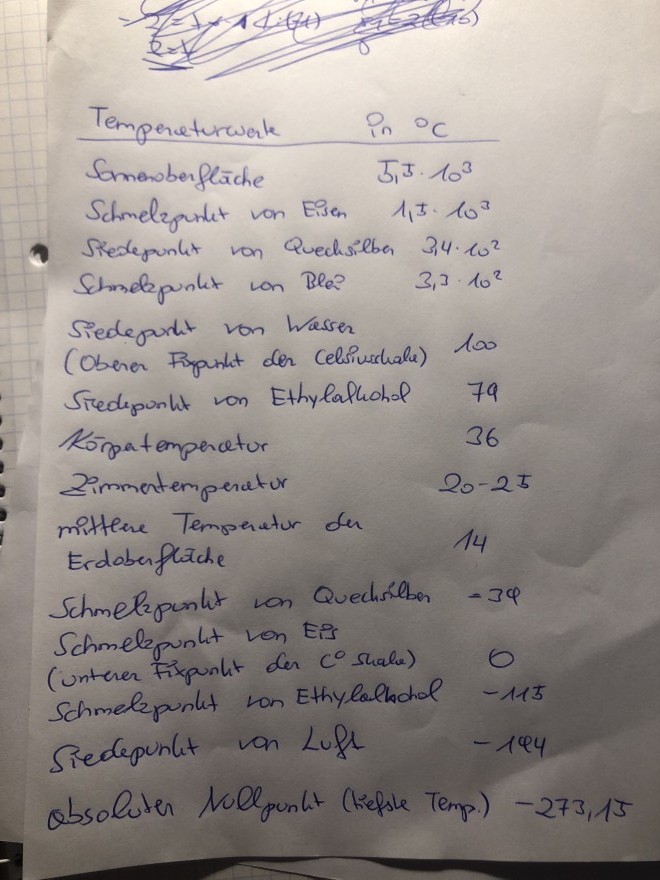 Temperaturwerte in °C
Sonnenoberfläche 5,5 · 10³
Schmelzpunkt von Eisen 1,5 · 10³
Siedepunkt von Quechsilber 3,4 · 10²
Schmelzpunkt von Blei 3,3 · 10²
Siedepunkt von Wasser
(Oberer Fixpunkt der Celsiusskala) 100
Siedepunkt von Ethylalkohol 79
Körpertemperatur 36
Zimmertemperatur 20-25
mittlere Temperatur der
Erdoberfläche 14
Schmelzpunkt von Quechsilber -39
Schmelzpunkt von Eis
(unterer Fixpunkt der C° Skala) 0
Schmelzpunkt von Ethylalkohol -115
Siedepunkt von Luft -194
absoluter Nullpunkt (tiefste Temp.) -273,15